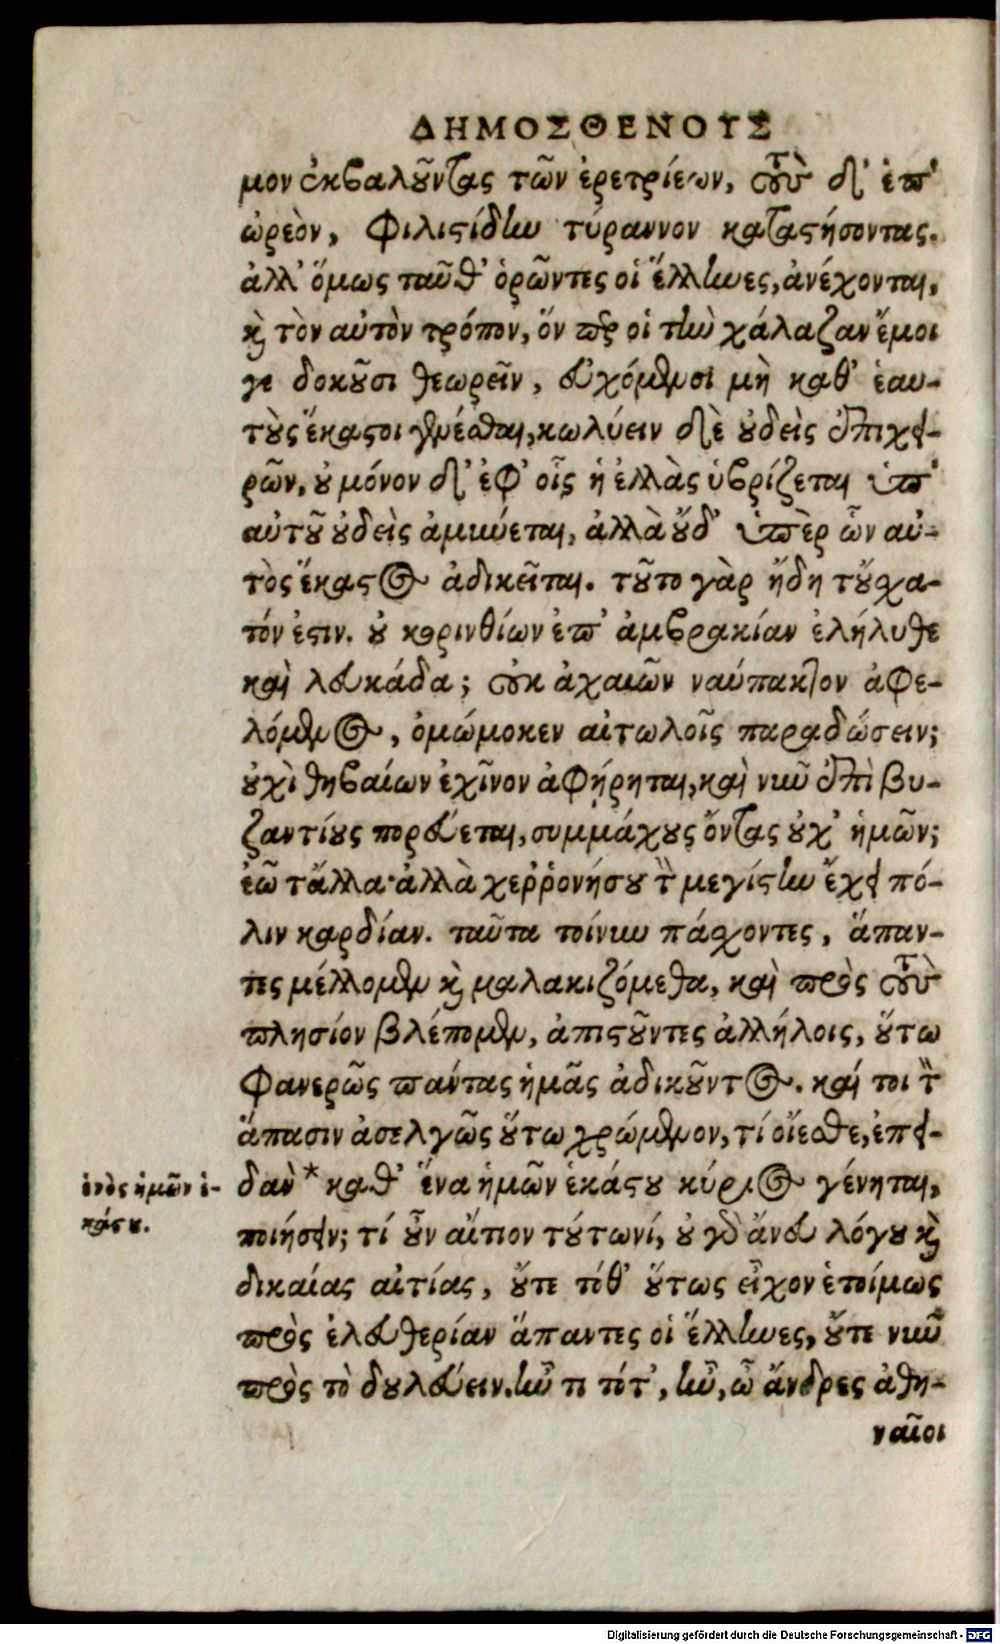 ΔΗΜΟΣΘΕΝΟΥΣ
μον ἐκβαλοῦντας τῶν ἐρετριέων, τοὺς δ' ἐπ'
ὠρεὸν, Φιλιστίδην τύραννον καταστήσοντας.
ἀλλ' ὅμως ταῦθ' ὁρῶντες οἱ ἕλληνες, ἀνέχονται,
καὶ τὸν αὐτὸν τρόπον, ὅν περ οἱ τὴν χάλαζαν ἔμοι
γε δοκοῦσι θεωρεῖν, εὐχόμενοι μὴ καθ' ἑαυ-
τοὺς ἕκαστοι γενέσθαι, κωλύειν δὲ οὐδεὶς ἐπιχει-
ρῶν. οὐ μόνον δ' ἐφ' οἷς ἡ ἑλλὰς ὑβρίζεται ὑπ'
αὐτοῦ οὐδεὶς ἀμύνεται, ἀλλὰ οὐδ' ὑπὲρ ὧν αὐ-
τὸς ἕκαστος ἀδικεῖται. τοῦτο γὰρ ἤδη τοὔσχα-
τόν ἐστιν. οὐ κορινθίων ἐπ' ἀμβρακίαν ἐλήλυθε
καὶ λευκάδα; οὐκ ἀχαιῶν ναύπακτον ἀφε-
λόμενος, ὀμώμοκεν αἰτωλοῖς παραδώσειν;
οὐχὶ θηβαίων ἐχῖνον ἀφῄρηται, καὶ νῦν ἐπὶ βυ-
ζαντίους πορεύεται, συμμάχους ὄντας οὐχ' ἡμῶν;
ἐῶ τἄλλα· ἀλλὰ χερῤονήσου τὴν μεγίστην ἔχει πό-
λιν καρδίαν. ταῦτα τοίνυν πάσχοντες, ἅπαν-
τες μέλλομεν καὶ μαλακιζόμεθα, καὶ πρὸς τοὺς
πλησίον βλέπομεν, ἀπιστοῦντες ἀλλήλοις, οὕτω
φανερῶς πάντας ἡμᾶς ἀδικοῦντος. καί τοι τὸν
ἅπασιν ἀσελγῶς οὕτω χρώμενον, τί οἴεσθε, ἐπει-
δὰν * καθ' ἕνα ἡμῶν ἑκάστου κύριος γένηται,
ἑνὸς ἡμῶν ἑ-
κάστου.
ποιήσειν; τί οὖν αἴτιον τουτωνί, οὐ γὰρ ἄνευ λόγου καὶ
δικαίας αἰτίας, οὔτε τόθ' οὕτως εἶχον ἑτοίμως
πρὸς ἐλευθερίαν ἅπαντες οἱ ἕλληνες, οὔτε νῦν
πρὸς τὸ δουλεύειν. ἦν τι τότ', ἦν, ὦ ἄνδρες ἀθη-
ναῖοι
Digitalisierung gefördert durch die Deutsche Forschungsgemeinschaft - DFG